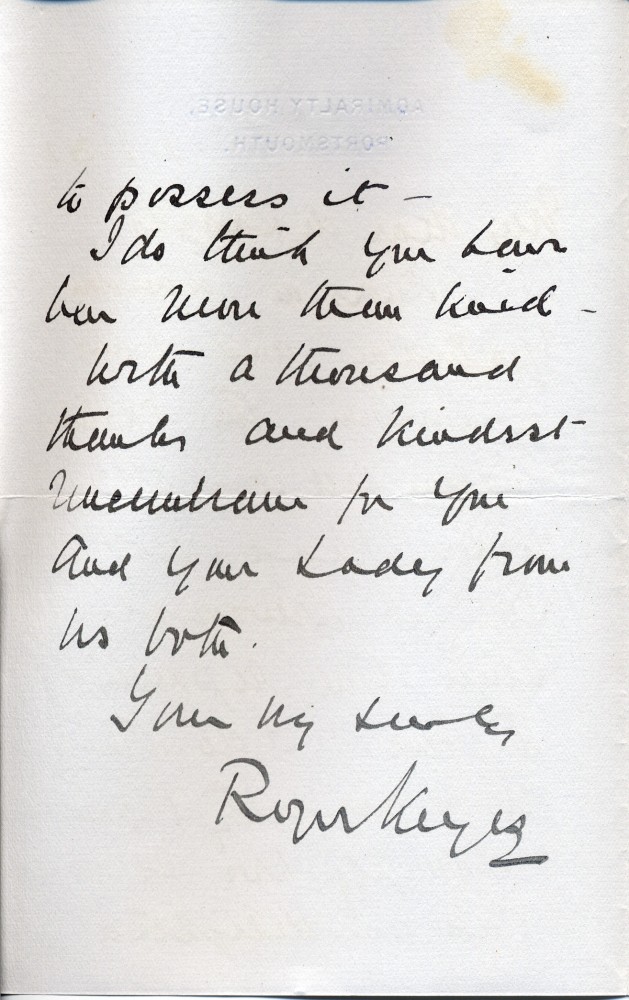 ADMIRALTY HOUSE,
PORTSMOUTH.
to possess it –
I do think you have
been more than kind –
With a thousand
thanks and kindest
remembrances for you
And your Lady from
us both.
Yours very sincerely
Roger Keyes